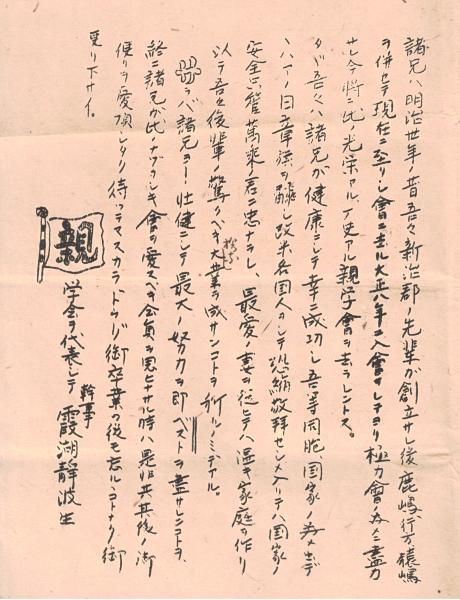 諸兄ハ明治卅年ノ昔吾々新治郡ノ先輩が創立サレ後鹿嶋行方猿嶋
ヲ併セテ現在ニ至リシ會ニ去ル大正八年ニ入會サレテヨリ極力會ノ為メニ盡力
サレ今将ニ此ノ光栄アル、丁史アル親学會ヲ去ラレントス。
タヾ吾々ハ諸兄が健康ニシテ幸ニ成功シ吾等同胞、国家ノ為メ出デ
ハ一ノ日章旗ヲ飜シ欧米各国人ヲシテ恐縮敬拜セシメ入リテハ国家ノ
安全ニ萬乗ノ君ニ忠ナラレ、最愛ノ妻ヲ従ヒテハ温キ家庭ヲ作リ
以テ吾々後輩ノ驚クベキ大業ヲ成サンコトヲ祈ルノミデアル。
ラバ諸兄ヨー壮健ニシテ最大ノ努力ヲ即ベストヲ盡サレンコトヲ、
終ニ諸兄が此ナツカシキ會ヲ愛スベキ会員ヲ思ヒナサル時ハ是非共其後ノ御
便リヲ愛項シタク待ツテマスカラドウゾ御卒業ノ後モ忘ルヽコトナク御
受リ下サイ。
親
学会ヲ代表シテ
幹事 霞湖静波生